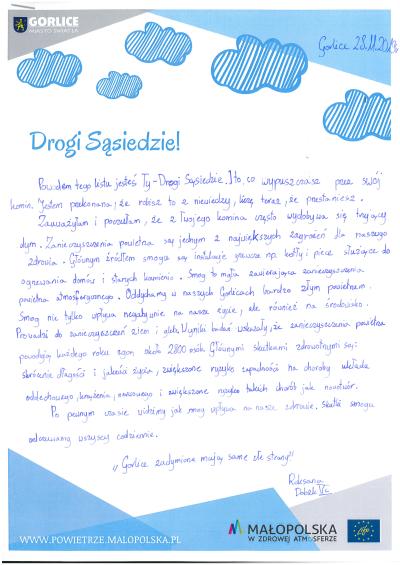 GORLICE
MIASTO ŚWIATŁA
Gorlice 28.11.2023r
Drogi Sąsiedzie!
Powodem tego listu jesteś Ty - Drogi Sąsiedzie. I to, co wypuszczasz przez swój
komin. Jestem przekonana, że robisz to z niewiedzy, liczę teraz, że przestaniesz.
Zauważyłam i poczułam, że z Twojego komina często wydobywa się gryzący
dym. Zanieczyszczenia powietrza są jednym z największych zagrożeń dla naszego
zdrowia. Głównym źródłem smogu są instalacje grzewcze np. kotły i piece służące do
ogrzewania domów i starych kamienic. Smog to mgła zawierająca zanieczyszczenia
powietrza atmosferycznego. Oddychamy w naszych Gorlicach bardzo złym powietrzem.
Smog nie tylko wpływa negatywnie na nasze życie, ale również na środowisko.
Prowadzi do zanieczyszczeń ziem i gleb. Wyniki badań wskazały, że zanieczyszczenia powietrza
powodują każdego roku zgon około 2800 osób. Głównymi skutkami zdrowotnymi są:
skrócenie długości i jakości życia, zwiększone ryzyko zapadności na choroby układu
oddechowego, krążenia, nerwowego i zwiększone ryzyko takich chorób jak nowotwór.
Po pewnym czasie widzimy jak smog wpływa na nasze zdrowie. Skutki smogu
odczuwamy wszyscy codziennie.
„Gorlice zadymione mają same złe strony"
Dubek
WWW.POWIETRZE.MALOPOLSKA.PL
MAŁOPOLSKA
W ZDROWEJ ATMOSFERZE